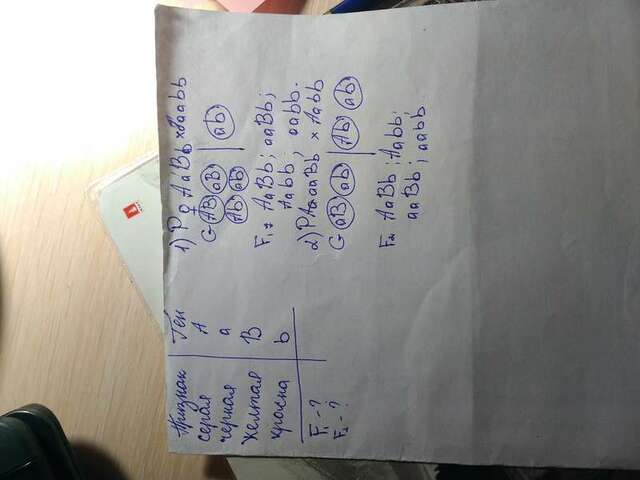 Признак Ген
серая A
черная a
желтая B
красна b
F₁ - ?
F₂ - ?
1) P ♀ AaBb x aabb
G AB aB | ab
Ab ab
F₁ = AaBb; aaBb;
Aabb; aabb.
2) P aaBb x Aabb
G aB ab | Ab ab
F₂ AaBb; Aabb;
aaBb; aabb.